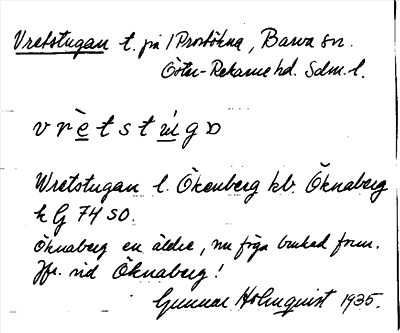 Vretstugan t. på 1 Prostökna, Barva sn.
Öster-Rekarne hd. Sdm. l.
vrètstúgɷ
Wretstugan l. Ökenberg kb. Öknaberg
k G 74 SO.
Öknaberg en äldre, nu föga brukad form.
Jfr. vid Öknaberg!
Gunnar Holmquist 1935.